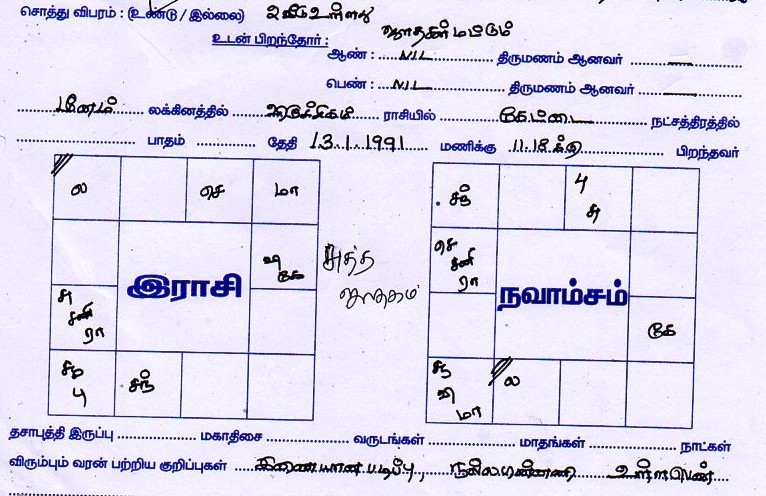 சொத்து விபரம் : (உண்டு / இல்லை) உள்ளது
உடன் பிறந்தோர் : ஜாதகர் மட்டும்
ஆண் : NIL திருமணம் ஆனவர் —
பெண் : NIL திருமணம் ஆனவர் —
மீனம் லக்கினத்தில் விருச்சிகம் ராசியில் கேட்டை நட்சத்திரத்தில்
பாதம் தேதி 13.1.1991 மணிக்கு 11.18 பிறந்தவர்
ல செ மா
கே
இராசி
சு சனி ரா
பு சந்
சுத்த ஜாதகம்
சந் 4 சு
செ சனி ரா
நவாம்சம்
கே
மா ல
தசாபுத்தி இருப்பு மகாதிசை வருடங்கள் மாதங்கள் நாட்கள்
விரும்பும் வரன் பற்றிய குறிப்புகள் இணையான படிப்பு, உள்ள பெண்